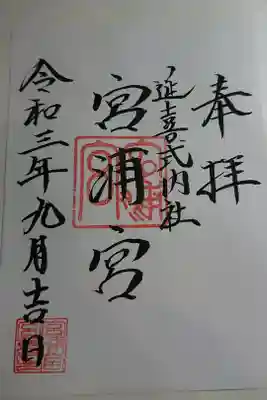 奉拝
延喜式内社
宮浦宮
令和三年九月吉日